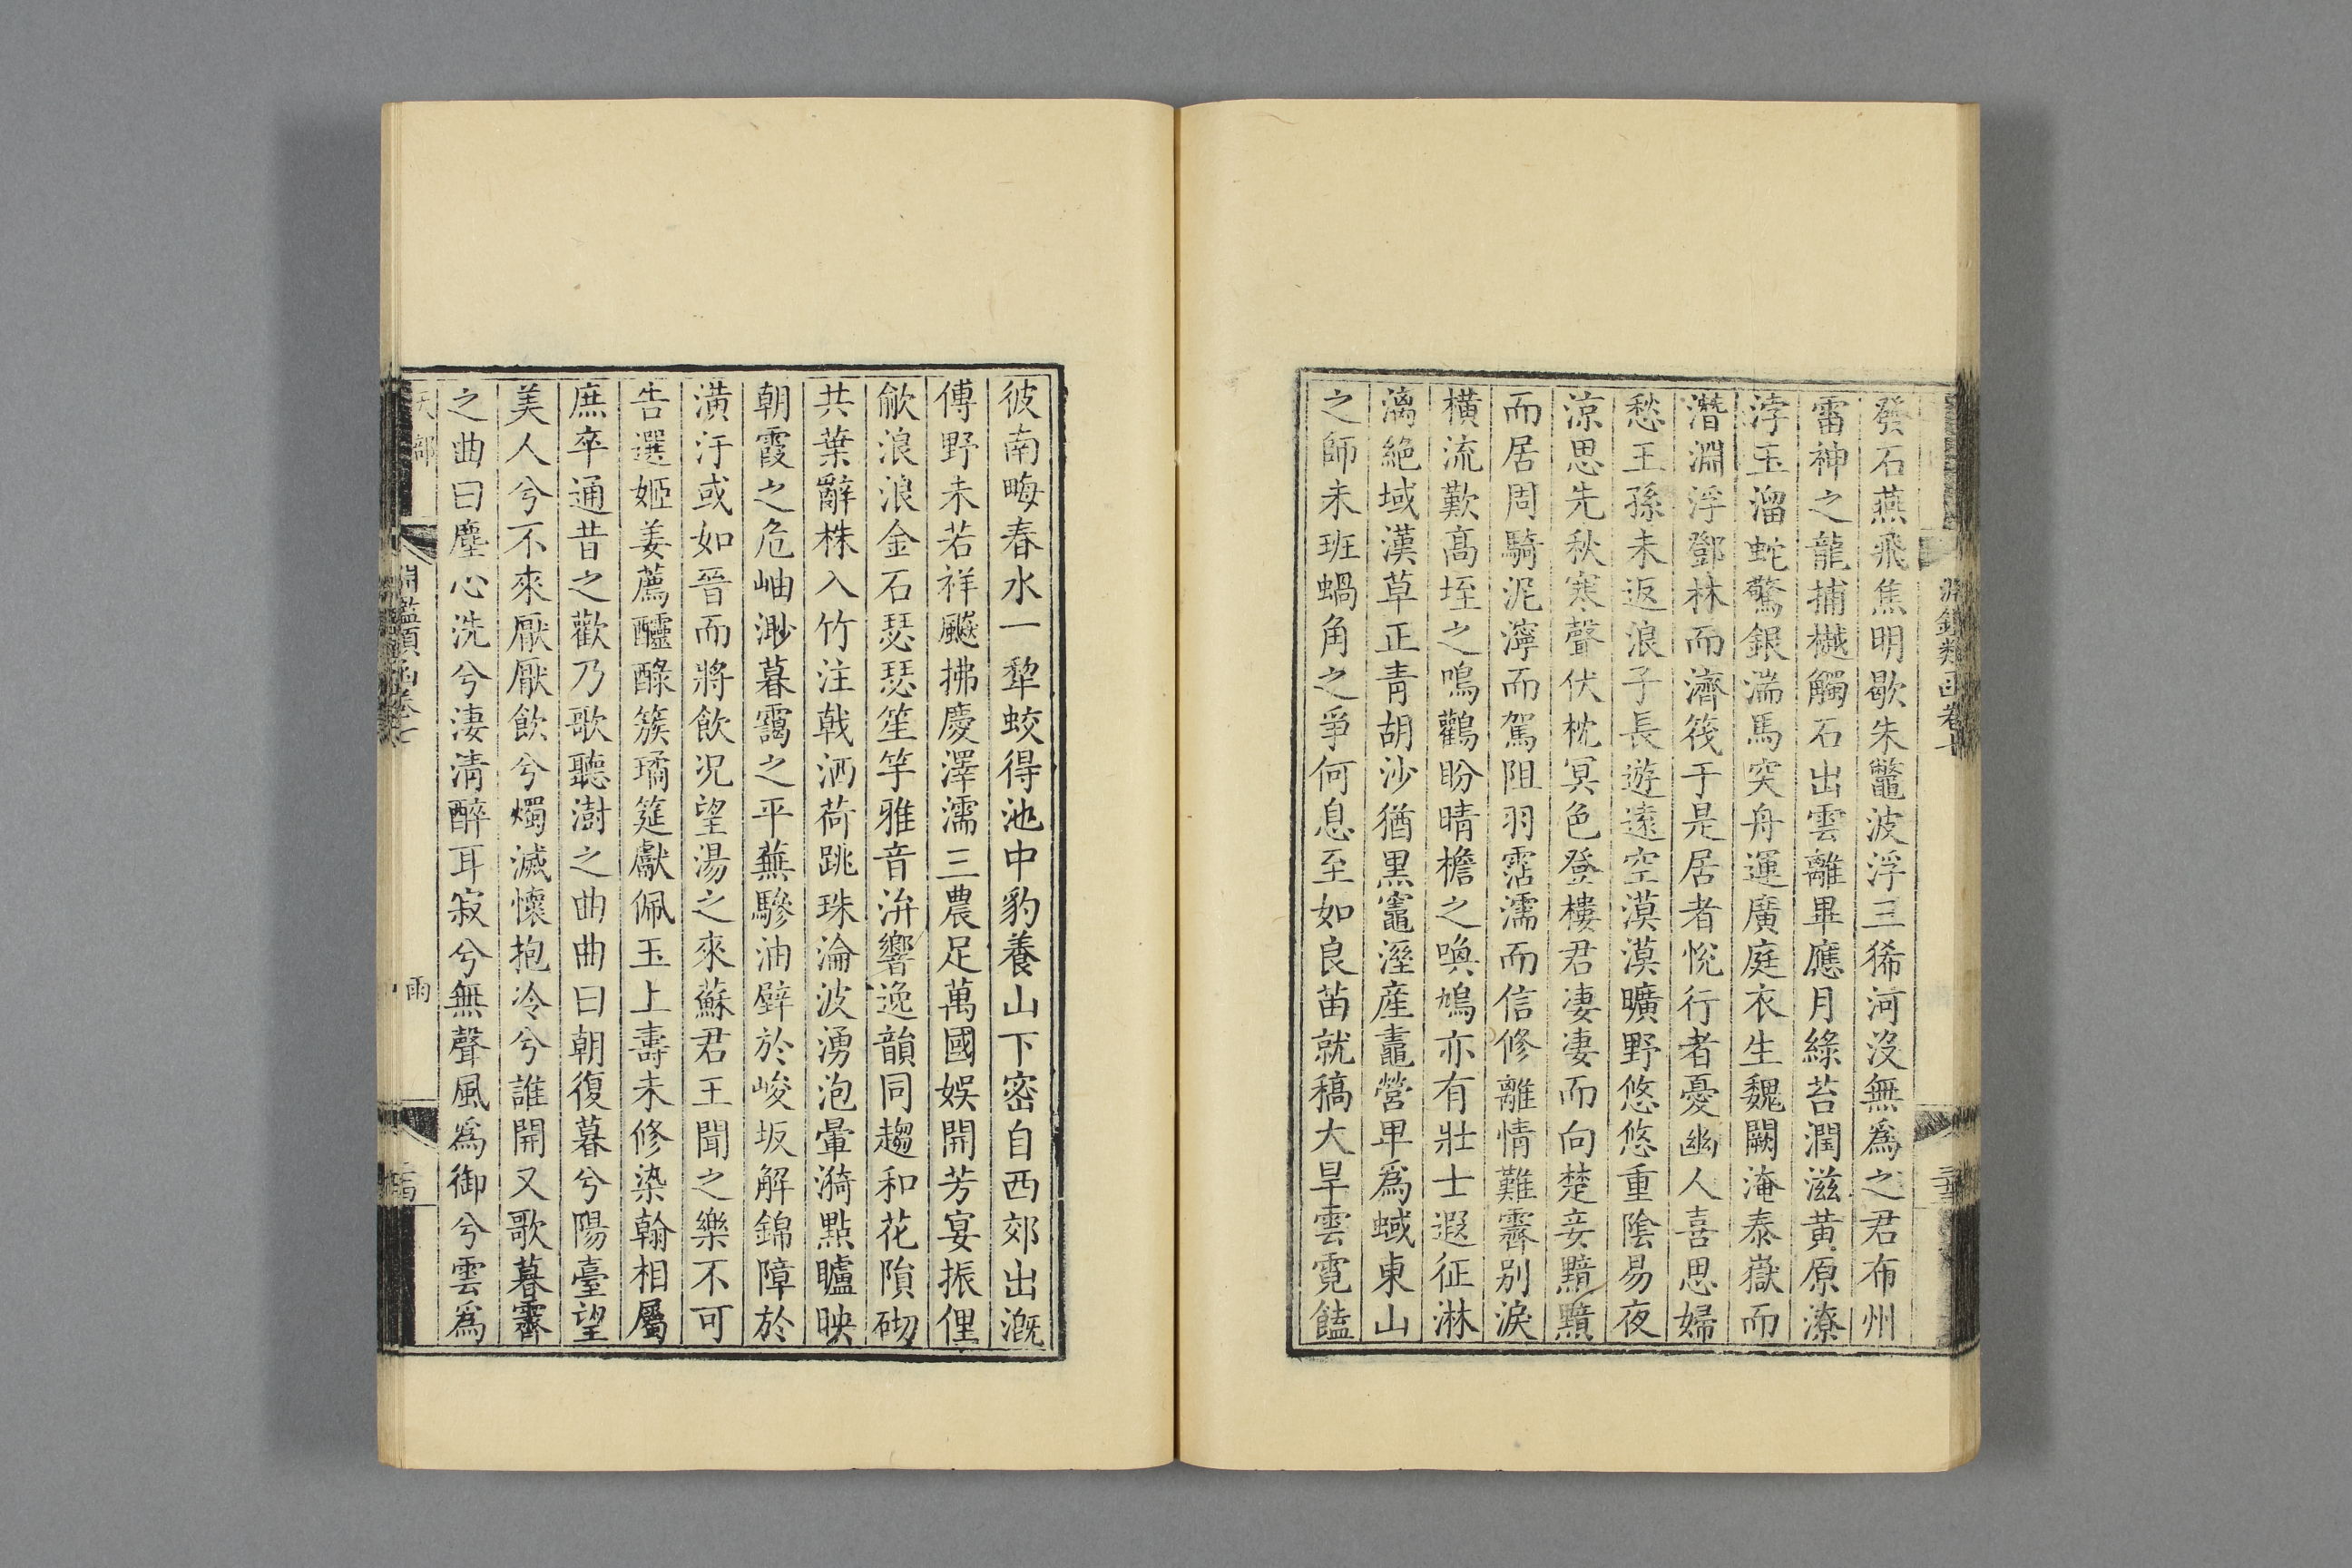 發石燕飛焦明歇朱鼈波浮三狶河沒無爲之君布州
雷神之龍捕樾觸石出雲離畢應月綠苔潤滋黄原潦
浡玉溜蛇驚銀湍馬突舟運廣庭衣生魏闕淹泰嶽而
潛淵浮鄧林而濟筏于是居者恱行者憂幽人喜思婦
愁王孫未返浪子長遊遠空漠漠曠野悠悠重陰易夜
涼思先秋寒聲伏枕冥色登樓君凄凄而向楚妾黯黯
而居周騎泥濘而駕阻羽霑濡而信修離情難霽別淚
橫流歎高垤之鳴鸛盼晴檐之喚鳩亦有壯士遐征淋
漓絶域漢草正青胡沙猶黒竈溼産鼃營甲爲蜮東山
之師未班蝸角之爭何息至如良苗就稿大旱雲霓饁
彼南畮春水一犂蛟得池中豹養山下密自西郊出漑
傅野未若祥飈拂慶澤濡三農足萬國娱開芳宴振俚
歈浪浪金石瑟瑟笙竽雅音泋響逸韻同趨和花隕砌
共葉辭株入竹注戟洒荷跳珠淪波湧泡暈漪點矑映
朝霞之危岫渺暮靄之平蕪驂油壁於峻坂解錦障於
潢汙或如晉而將飲況望湯之來蘇君王聞之樂不可
告選姬姜薦醽醁簇璚筵獻佩玉上壽未修染翰相屬
庶卒通昔之歡乃歌聽澍之曲曲曰朝復暮兮陽臺望
美人兮不來厭厭飲兮燭滅懷抱冷兮誰開又歌暮霽
之曲曰塵心洗兮淒清醉耳寂兮無聲風爲御兮雲爲
天部
淵鑑類函卷七
雨